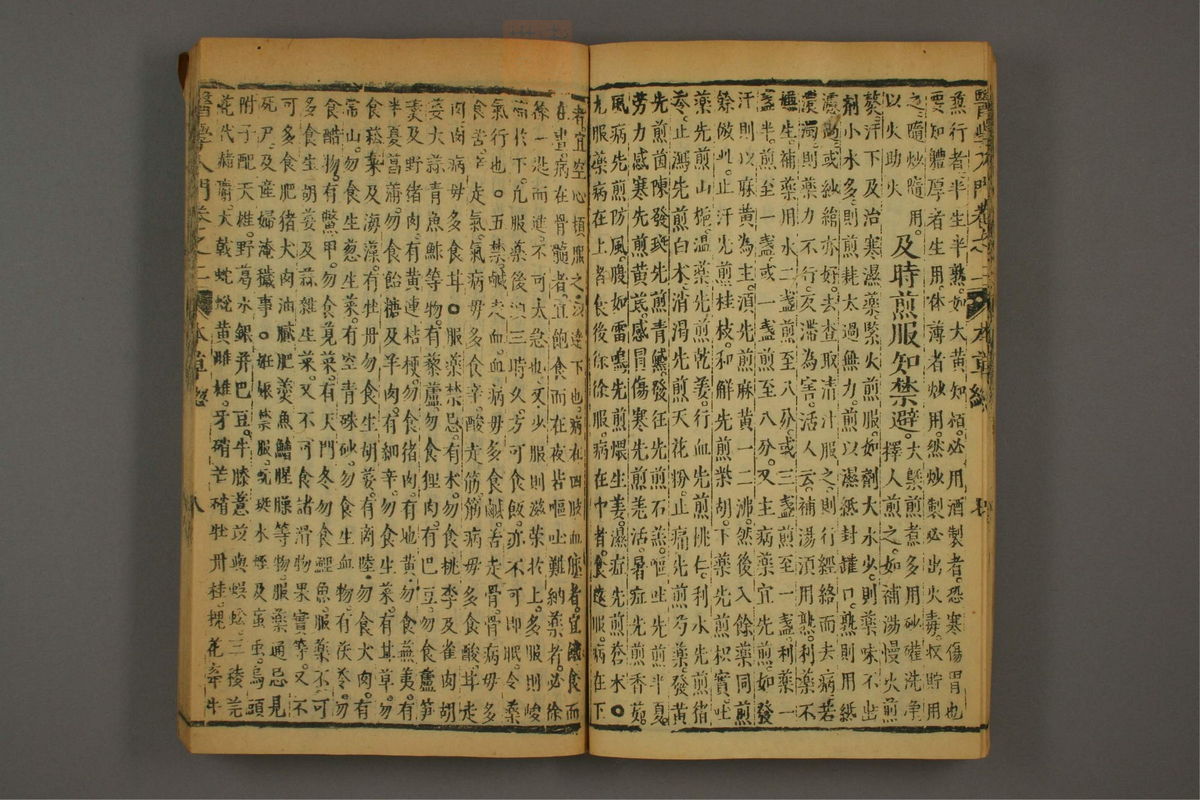 醫學入門 卷之二 本草總
蒸行者半生半熟。如大黃知栢。必用酒製者。恐寒傷胃也
要知體厚者生用。体薄者炒用。然炒製必出火毒。收貯用
之。隨炒隨用。 及時煎服知禁避。大槩煎煮多用砂確洗净
以火助火 擇人煎之。如補湯慢火煎
藥汗下及治寒濕藥緊火煎服。如劑大水少。則藥味不出
劑小水多。則煎耗太過無力。煎以濕紙封罐口。熟則用紙
濾過或紗絹亦好。去查取清汁服之。則行經絡而去病。若
濃濁。藥力不行。反滯為害。活人云。補湯須用熟。利藥不
嫌生。補藥用水二盞煎至八分。或三盞煎至一盞。利藥一
盞半。煎至一盞。或一盞煎至八分。又主病藥宜先煎。如發
汗。則以麻黃為主。須先煎麻黃一二沸。然後入餘藥同煎
餘倣此。止汗先煎桂枝。和解先煎柴胡。下藥先煎枳實。吐
藥先煎山梔。溫藥先煎乾姜。行血先煎桃仁。利水先煎猪
苓。止瀉先煎白朮。消渴先煎天花粉。止痛先煎芍藥。發黃
先煎茵陳。發斑先煎青黛。發狂先煎石羔。嘔吐先煎半夏。
勞力感寒先煎黃茋。感冒傷寒先煎羌活。暑症先煎香茹。
風病先煎防風。腹如雷鳴。先煎煨生姜。濕症先煎蒼朮。○
凡服藥病在上者。食後徐徐服。病在中者。食遠服。病在下
者。宜空心頓服之。以達下也。病在四肢血脉者。宜飢食而
在晝。病在骨髓者。宜飽食而在夜。若嘔吐難納藥者。必徐
徐一匙而進。不可太急也。又少服則滋榮於上。多服則峻
補於下。凡服藥後。須三時久。方可食飯。亦不可即眠。令藥
氣行也。○五禁鹹走血。血病毋多食鹹。苦走骨。骨病毋多
食苦。辛走氣。氣病毋多食辛。酸走筋。筋病毋多食酸。甘走
肉。肉病毋多食甘。○服藥禁忌。有朮。勿食桃李及雀肉胡
荽大蒜青魚鮓等物。有藜蘆。勿食狸肉。有巴豆。勿食蘆笋
羹及野猪肉。有黃連桔梗。勿食猪肉。有地黃。勿食蕪荑。有
半夏菖蒲。勿食飴糖及羊肉。有細辛。勿食生菜。有甘草。勿
食菘菜及海藻。有牡丹。勿食生胡荽。有商陸。勿食犬肉。有
常山。勿食生葱生菜。有空青硃砂。勿食生血物。有茯苓。勿
食醋物。有鱉甲。勿食莧菜。有天門冬。勿食鯉魚。服藥不可
多食生胡荽及蒜雜生菜。又不可食諸滑物果實等。又不
可多食肥猪犬肉油膩肥羹魚鱠腥臊等物。服藥通忌見
死尸及產婦淹穢事。○姙娠禁服。蚖斑水蛭及䖟虫。烏頭
附子配天雄。野葛水銀并巴豆。牛膝薏苡與蜈蚣。三稜芫
花代赭麝。大戟蛇蛻黃雌雄。牙硝芒硝牡丹桂。槐花牽牛
醫學入門 卷之二 本草總 八